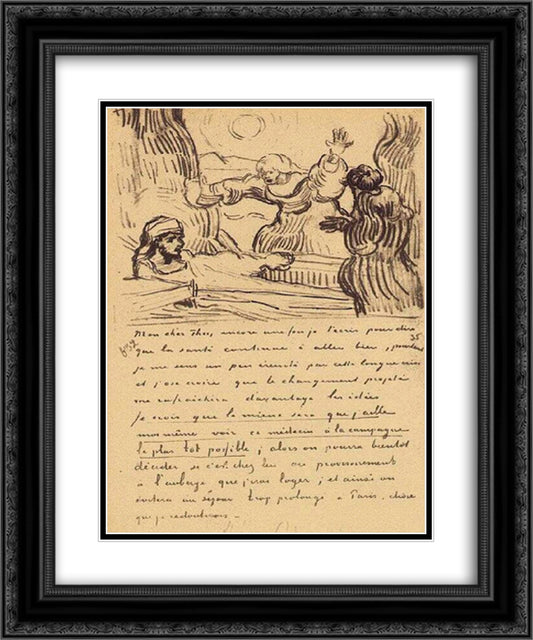 Mon cher Theo, encore une fois je t'écris pour dire
35
que la santé continue à aller bien, pourtant
je me sens un peu éreinté par cette longue crise
et j'ose croire que le changement projeté
me rafraichira davantage les idées
Je crois que le mieux sera que j'aille
moi même voir ce médecin à la campagne
le plus tôt possible; alors on pourra bientôt
décider si c'est chez lui ou provisoirement
à l'auberge que j'irai loger; et ainsi on
évitera un séjour trop prolongé à Paris, chose
que je redouterais. –